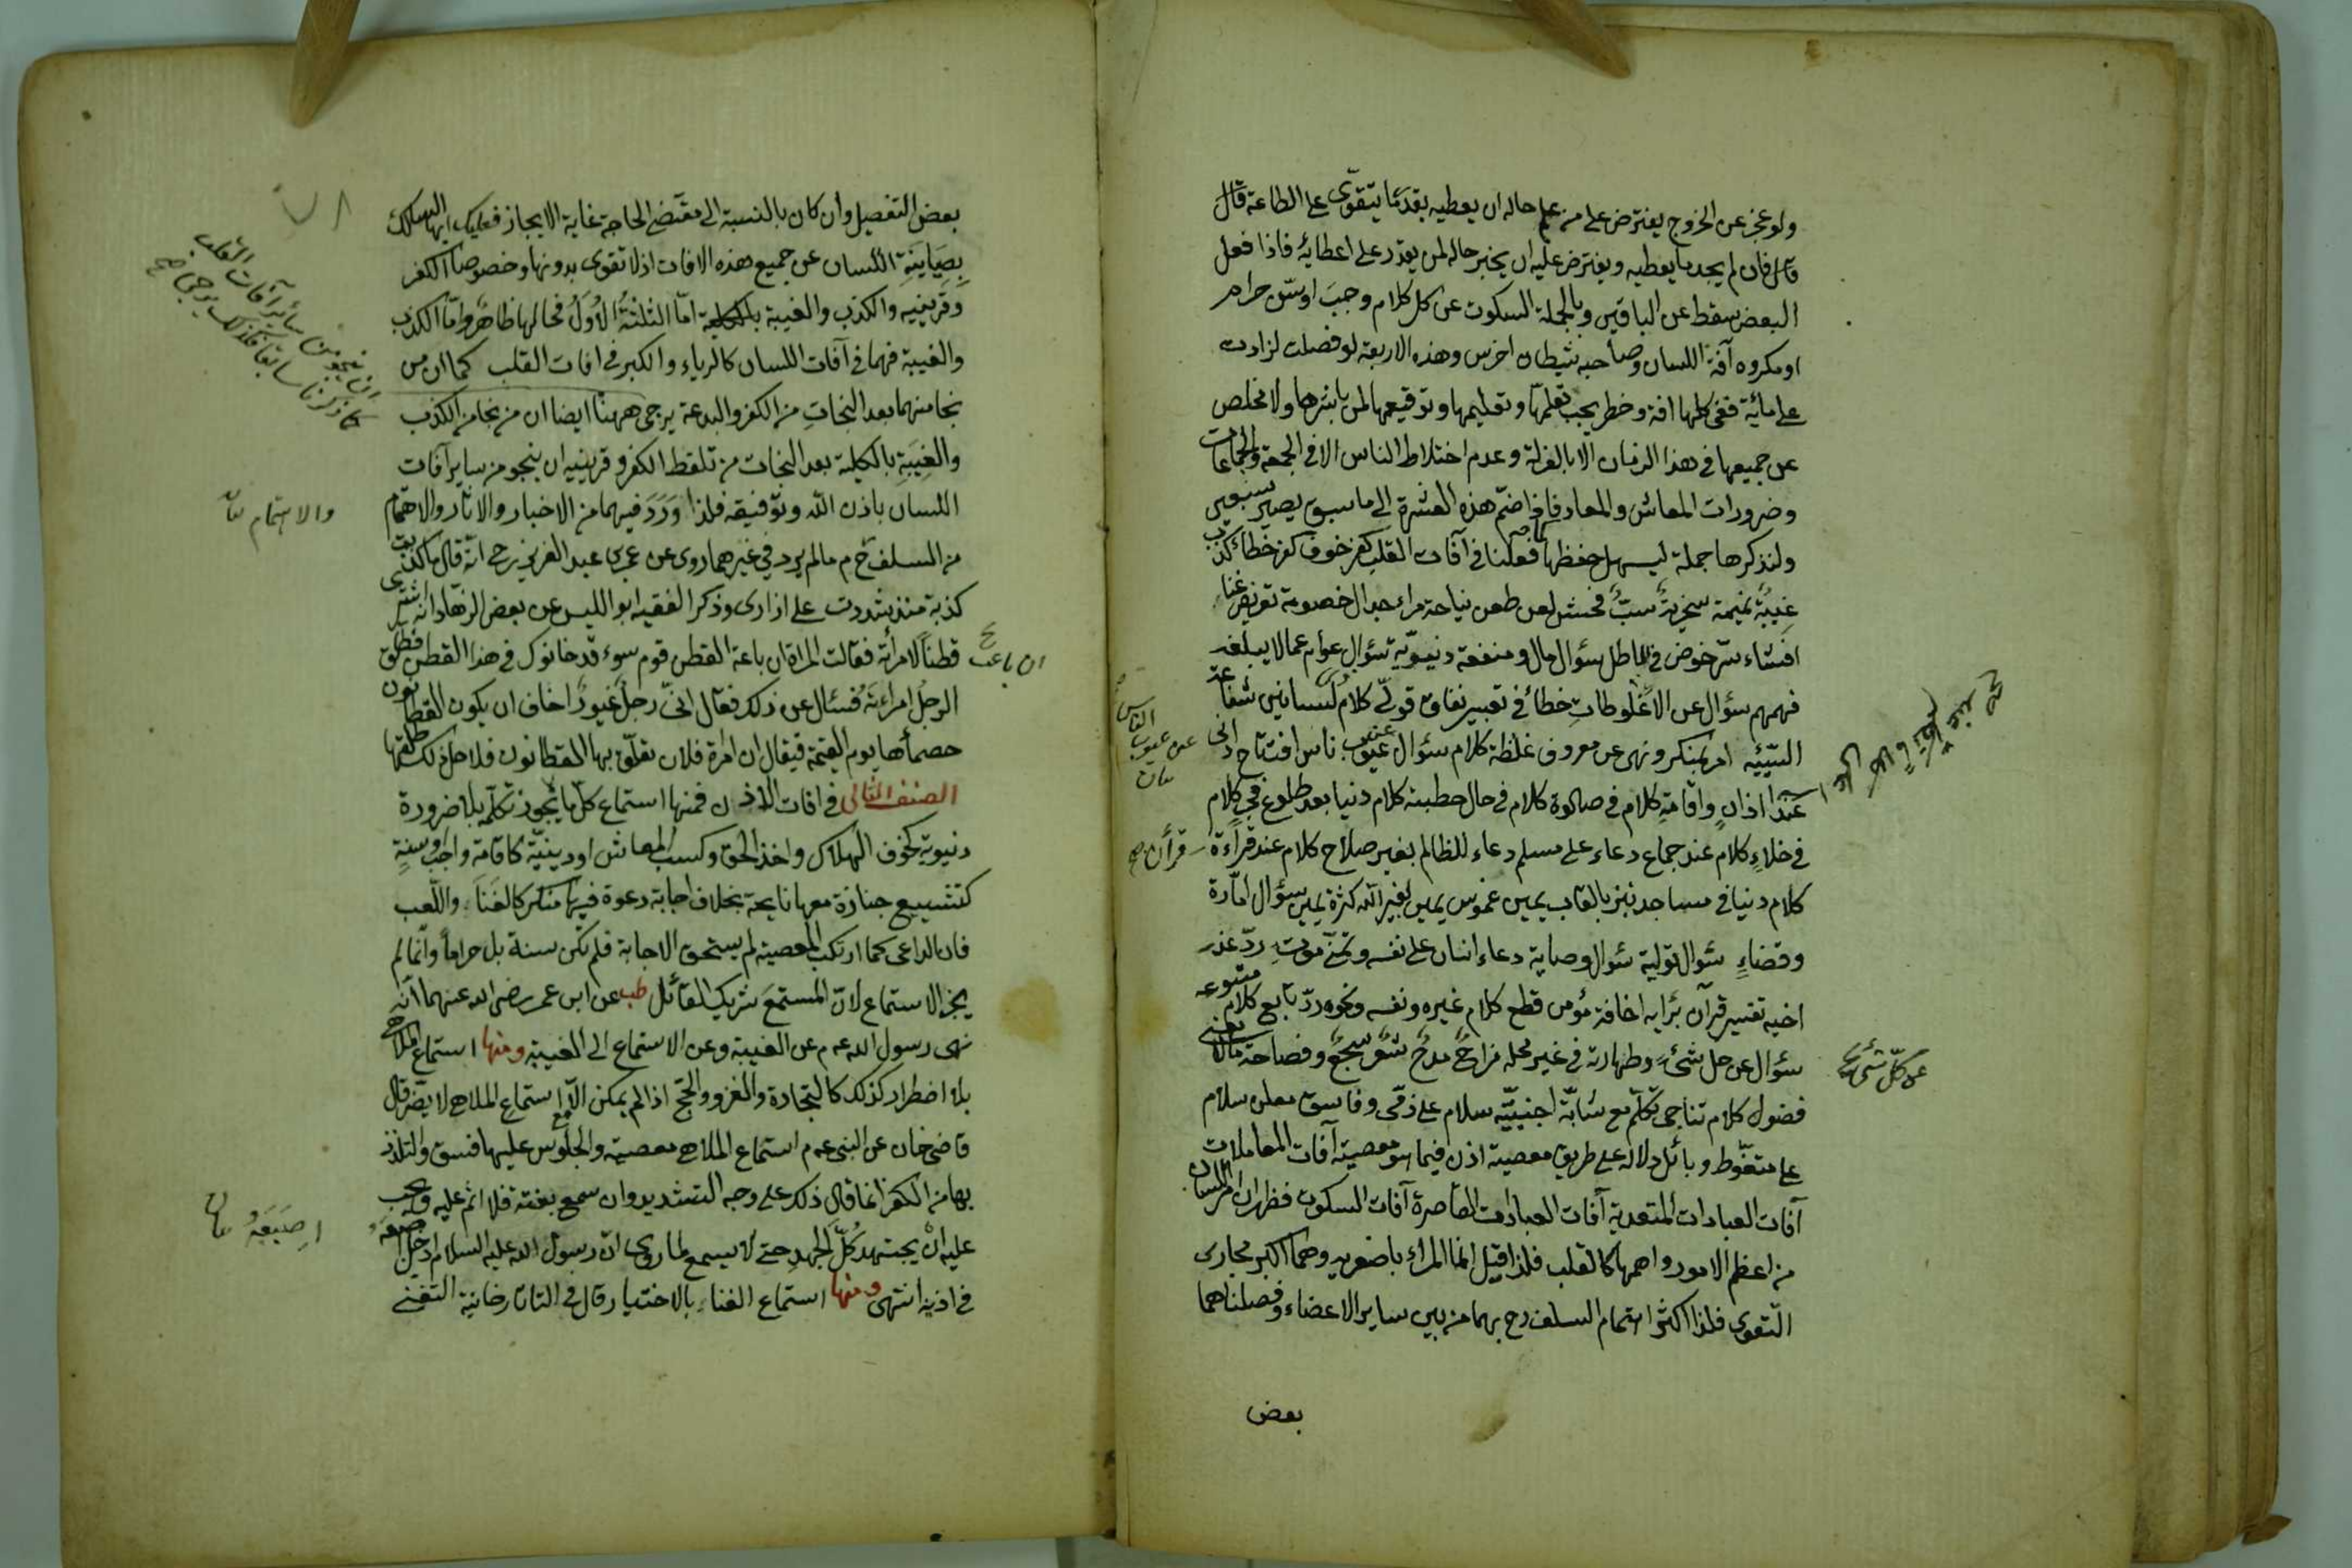 ولو عجز عن الخروج يفترض على من علم حاله ان يعطيه بقدر ما يتقوى على الطاعة قال
فان لم يجد ما يعطيه ويفترض عليه ان يخبر حاله لمن يقدر على اعطائه فاذا فعل
البعض سقط عن الباقين وبالجملة السكوت عن كل كلام وجب او سن حرام
او مكروه آفة اللسان وصاحبه شيطان اخرس وهذه الاربعة لو فصلت لزادت
على مائة ففي كلها افة وخطر يجب تعلمها وتعليمها وتوقيعها لمن باشرها ولا مخلص
عن جميعها في هذا الزمان الا بالعزلة وعدم اختلاط الناس الا في الجمعة والجماعات
وضرورات المعاش والمعاد فاذا ضم هذه العشرة الى ما سبق يصير ستين
ولنذكرها جملة ليسهل حفظها كما فعلنا في آفات القلب كفر خوف كفر خطاء كذب
غيبة نميمة سخرية سب فحش لعن طعن نياحة مراء جدال خصومة تعريض غناء
افشاء سر خوض في باطل سؤال مال ومنفعة دنيوية سؤال عوام عما لا يبلغه
فهمهم سؤال عن الاغلوطات خطاء في تعبير نفاق قولي كلام لسانين شفاعة
السيئة امر بمنكر ونهى عن معروف غلظة كلام سؤال عن عيوب ناس افتتاح ادنى
عند اذان واقامة كلام في صلوة كلام في حال خطبة كلام دنيا بعد طلوع فجر كلام
في خلاء كلام عند جماع دعاء على مسلم دعاء للظالم بغير صلاح كلام عند قراءة قرأن صح
كلام دنيا في مساجد نبز بالقاب يمين غموس يمين بغير الله كثرة يمين سؤال امارة
وقضاء سؤال تولية سؤال وصاية دعاء انسان على نفسه وتمني موت رد عذر
اخيه تفسير قرآن برأيه اخافة مؤمن قطع كلام غيره ونفسه ونحوه رد تابع كلام متبوعه
سؤال عن حل شيء وطهارته في غير محله مزاح مدح شعر سجع وفصاحة ما لا يعنى
فضول كلام تناجى تكلم مع شابة اجنبية سلام على ذمى وفاسق معلن سلام
على متغوط وبائل دلالة على طريق معصية اذن فيما هو معصية آفات المعاملات
آفات العبادات المتعدية آفات العبادات القاصرة آفات السكوت فظهر ان امر اللسان
من اعظم الامور واهمها كالقلب فلذا قيل انما المرء باصغريه وهما اكبر مجارى
التقوى فلذا اكثر اهتمام السلف رح بهما من بين ساير الاعضاء وفصلناهما
بعض
عن كل شيء
عن عيوب الناس
بعض التفصيل وان كان بالنسبة الى مقتضى الحاجة غاية الايجاز فعليك ايها السالك
بصيانة اللسان عن جميع هذه الافات اذ لا تقوى بدونها وخصوصا الكفر
وقرينيه والكذب والغيبة اما الثلثة الاول فحالها ظاهر واما الكذب
والغيبة فهما في آفات اللسان كالرياء والكبر في افات القلب كما ان من
نجا منهما بعد النجات من الكفر والبدعة يرجى ههنا ايضا ان من نجا من الكذب
والغيبة بالكلية بعد النجات من تلفظ الكفر وقرينيه ان ينجو من ساير آفات
اللسان باذن الله وتوفيقه فلذا ورد فيهما من الاخبار والاثار والاهتمام
من السلف مالم يرد في غيرهما روى عن عمر بن عبد العزيز رح انه قال ما كذبت
كذبة منذ شددت على ازارى وذكر الفقيه ابو الليث عن بعض الزهاد انه اشترى
قطنا لامرأته فقالت المراة ان باعة القطن قوم سوء قد خانوك في هذا القطن فطلق
الرجل امراءته فسئال عن ذلك فقال انى رجل غيور اخاف ان يكون القطانون
خصماءها يوم القيمة فيقال ان امرة فلان تعلق بها القطانون فلاجل ذلك طلقتها
الصنف الثانى في افات الاذن فمنها استماع كل ما يجوز تكلمه بلا ضرورة
دنيوية كخوف الهلاك واخذ الحق وكسب المعاش او دينية كاقامة واجب وسنة
كتشييع جنازة معها نايحة بخلاف اجابة دعوة فيها منكر كالغناء واللعب
فان الداعى كما ارتكب المعصية لم يستحق الاجابة فلم تكن سنة بل حراما وانما لم
يجز الاستماع لان المستمع شريك القائل طب عن ابن عمر رضى الله عنهما انه
نهى رسول الله عم عن الغيبة وعن الاستماع الى الغيبة ومنها استماع الملاهى
بلا اضطرار كذلك كالتجارة والغزو والحج اذا لم يمكن الا مع استماع الملاهى لا يضر قال
قاضى خان عن النبى عم استماع الملاهى معصية والجلوس عليها فسق والتلذذ
بها من الكفر انما قال ذلك على وجه التشديد وان سمع بغتة فلا اثم عليه ويجب
عليه ان يجتهد كل الجهد حتى لا يسمع لما روى ان رسول الله عليه السلام ادخل اصبعه
في اذنيه انتهى ومنها استماع الغناء بالاختيار قال في التاتارخانية التغنى
ان ينجو من سائر آفات القلب
كما ذكرنا سابقا فكذلك يرجى صح
والاهتمام
ان باعة
اصبعه